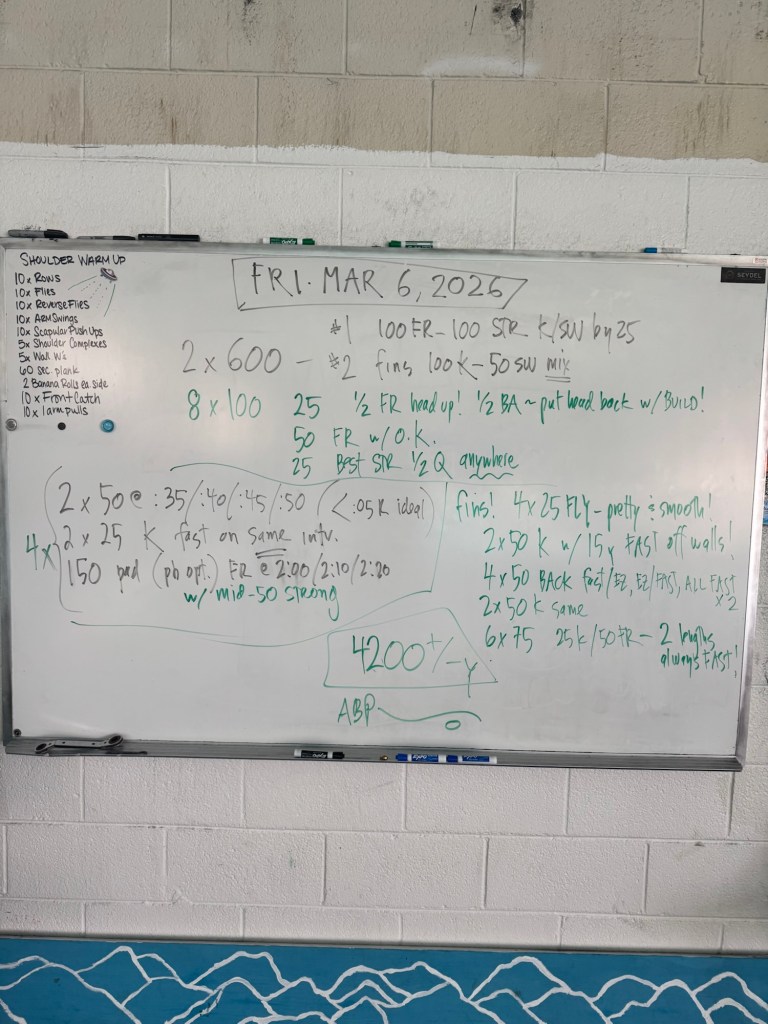 SHOULDER WARM UP
10x Rows
10x Flies
10x Reverse Flies
10x ARM Swings
10x Scapular Push Ups
5x Shoulder Complexes
5x Wall W's
60 sec. plank
2 Banana Rolls ea. side
10x Front Catch
10x 1 arm pulls
BEYDEL
FRI. MAR 6, 2026
2 x 600 –
#1 100 FR – 100 STR K/SW by 25
#2 fins 100 K – 50 SW mix
8 x 100 25 1/2 FR head up! 1/2 BA ~ put head back w/ BUILD!
50 FR w/ O.K.
25 BEST STR 1/2 Q anywhere
4x
2 x 50 @ :35/:40/:45/:50 (<:05 R ideal)
2 x 25 K fast on same intv.
150 pad (pb opt.) FR @ 2:00/2:10/2:20
w/ mid-50 strong
fins! 4x25 FLY – pretty & smooth!
2x50 K w/ 15y FAST off walls!
4x50 BACK fast/EZ, EZ/FAST, ALL FAST x2
2x50 K same
6x75 25K/50FR – 2 lengths
always FAST!
4200 +/- y
ABP